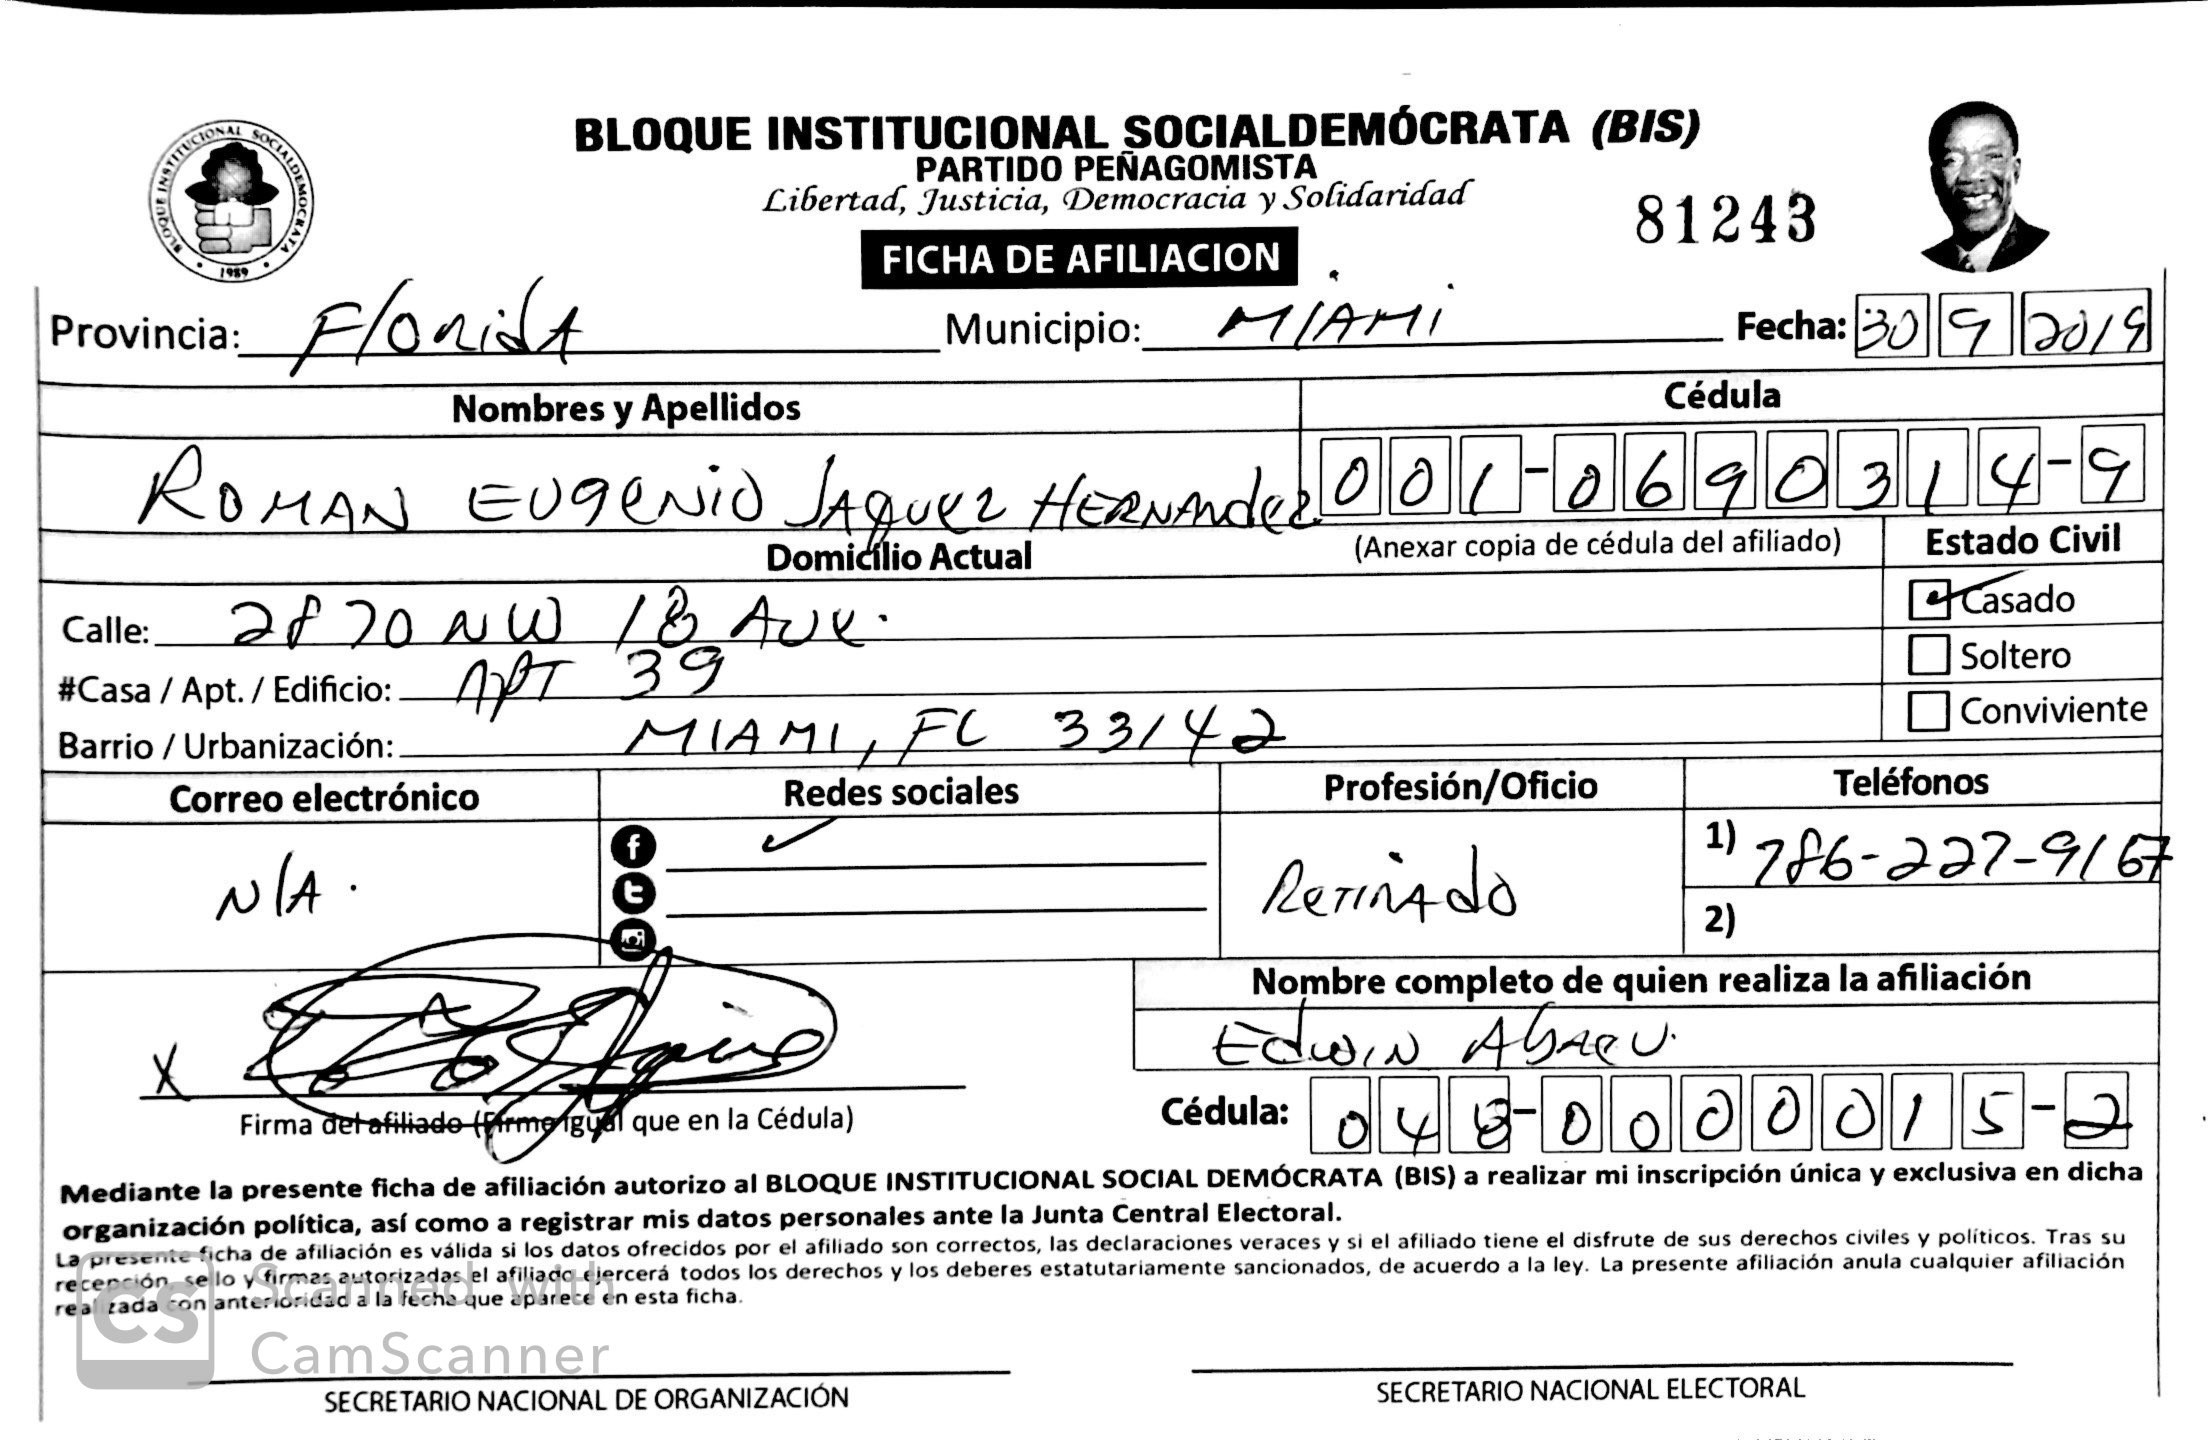 BLOQUE INSTITUCIONAL SOCIALDEMOCRATA
1989
BLOQUE INSTITUCIONAL SOCIALDEMÓCRATA (BIS)
PARTIDO PEÑAGOMISTA
Libertad, Justicia, Democracia y Solidaridad
81243
FICHA DE AFILIACION
Provincia: Florida Municipio: MIAMI Fecha: 30 9 2019
Nombres y Apellidos Cédula
ROMAN EUgENio JAQUEZ HERNANdez 001-0690314-9
Domicilio Actual (Anexar copia de cédula del afiliado) Estado Civil
Calle: 2870 NW 18 AVE. Casado
#Casa / Apt. / Edificio: APT 39 Soltero
Barrio / Urbanización: MIAMI, FL 33142 Conviviente
Correo electrónico Redes sociales Profesión/Oficio Teléfonos
N/A. RETIRAdo 1) 786-227-9167
2)
Nombre completo de quien realiza la afiliación
X EdwiN AbREU.
Firma del afiliado (Firme Igual que en la Cédula) Cédula: 048-0000015-2
Mediante la presente ficha de afiliación autorizo al BLOQUE INSTITUCIONAL SOCIAL DEMÓCRATA (BIS) a realizar mi inscripción única y exclusiva en dicha
organización política, así como a registrar mis datos personales ante la Junta Central Electoral.
La presente ficha de afiliación es válida si los datos ofrecidos por el afiliado son correctos, las declaraciones veraces y si el afiliado tiene el disfrute de sus derechos civiles y políticos. Tras su
recepción, sello y firmas autorizadas el afiliado ejercerá todos los derechos y los deberes estatutariamente sancionados, de acuerdo a la ley. La presente afiliación anula cualquier afiliación
realizada con anterioridad a la fecha que aparece en esta ficha.
CS Scanned with
CamScanner
SECRETARIO NACIONAL DE ORGANIZACIÓN SECRETARIO NACIONAL ELECTORAL